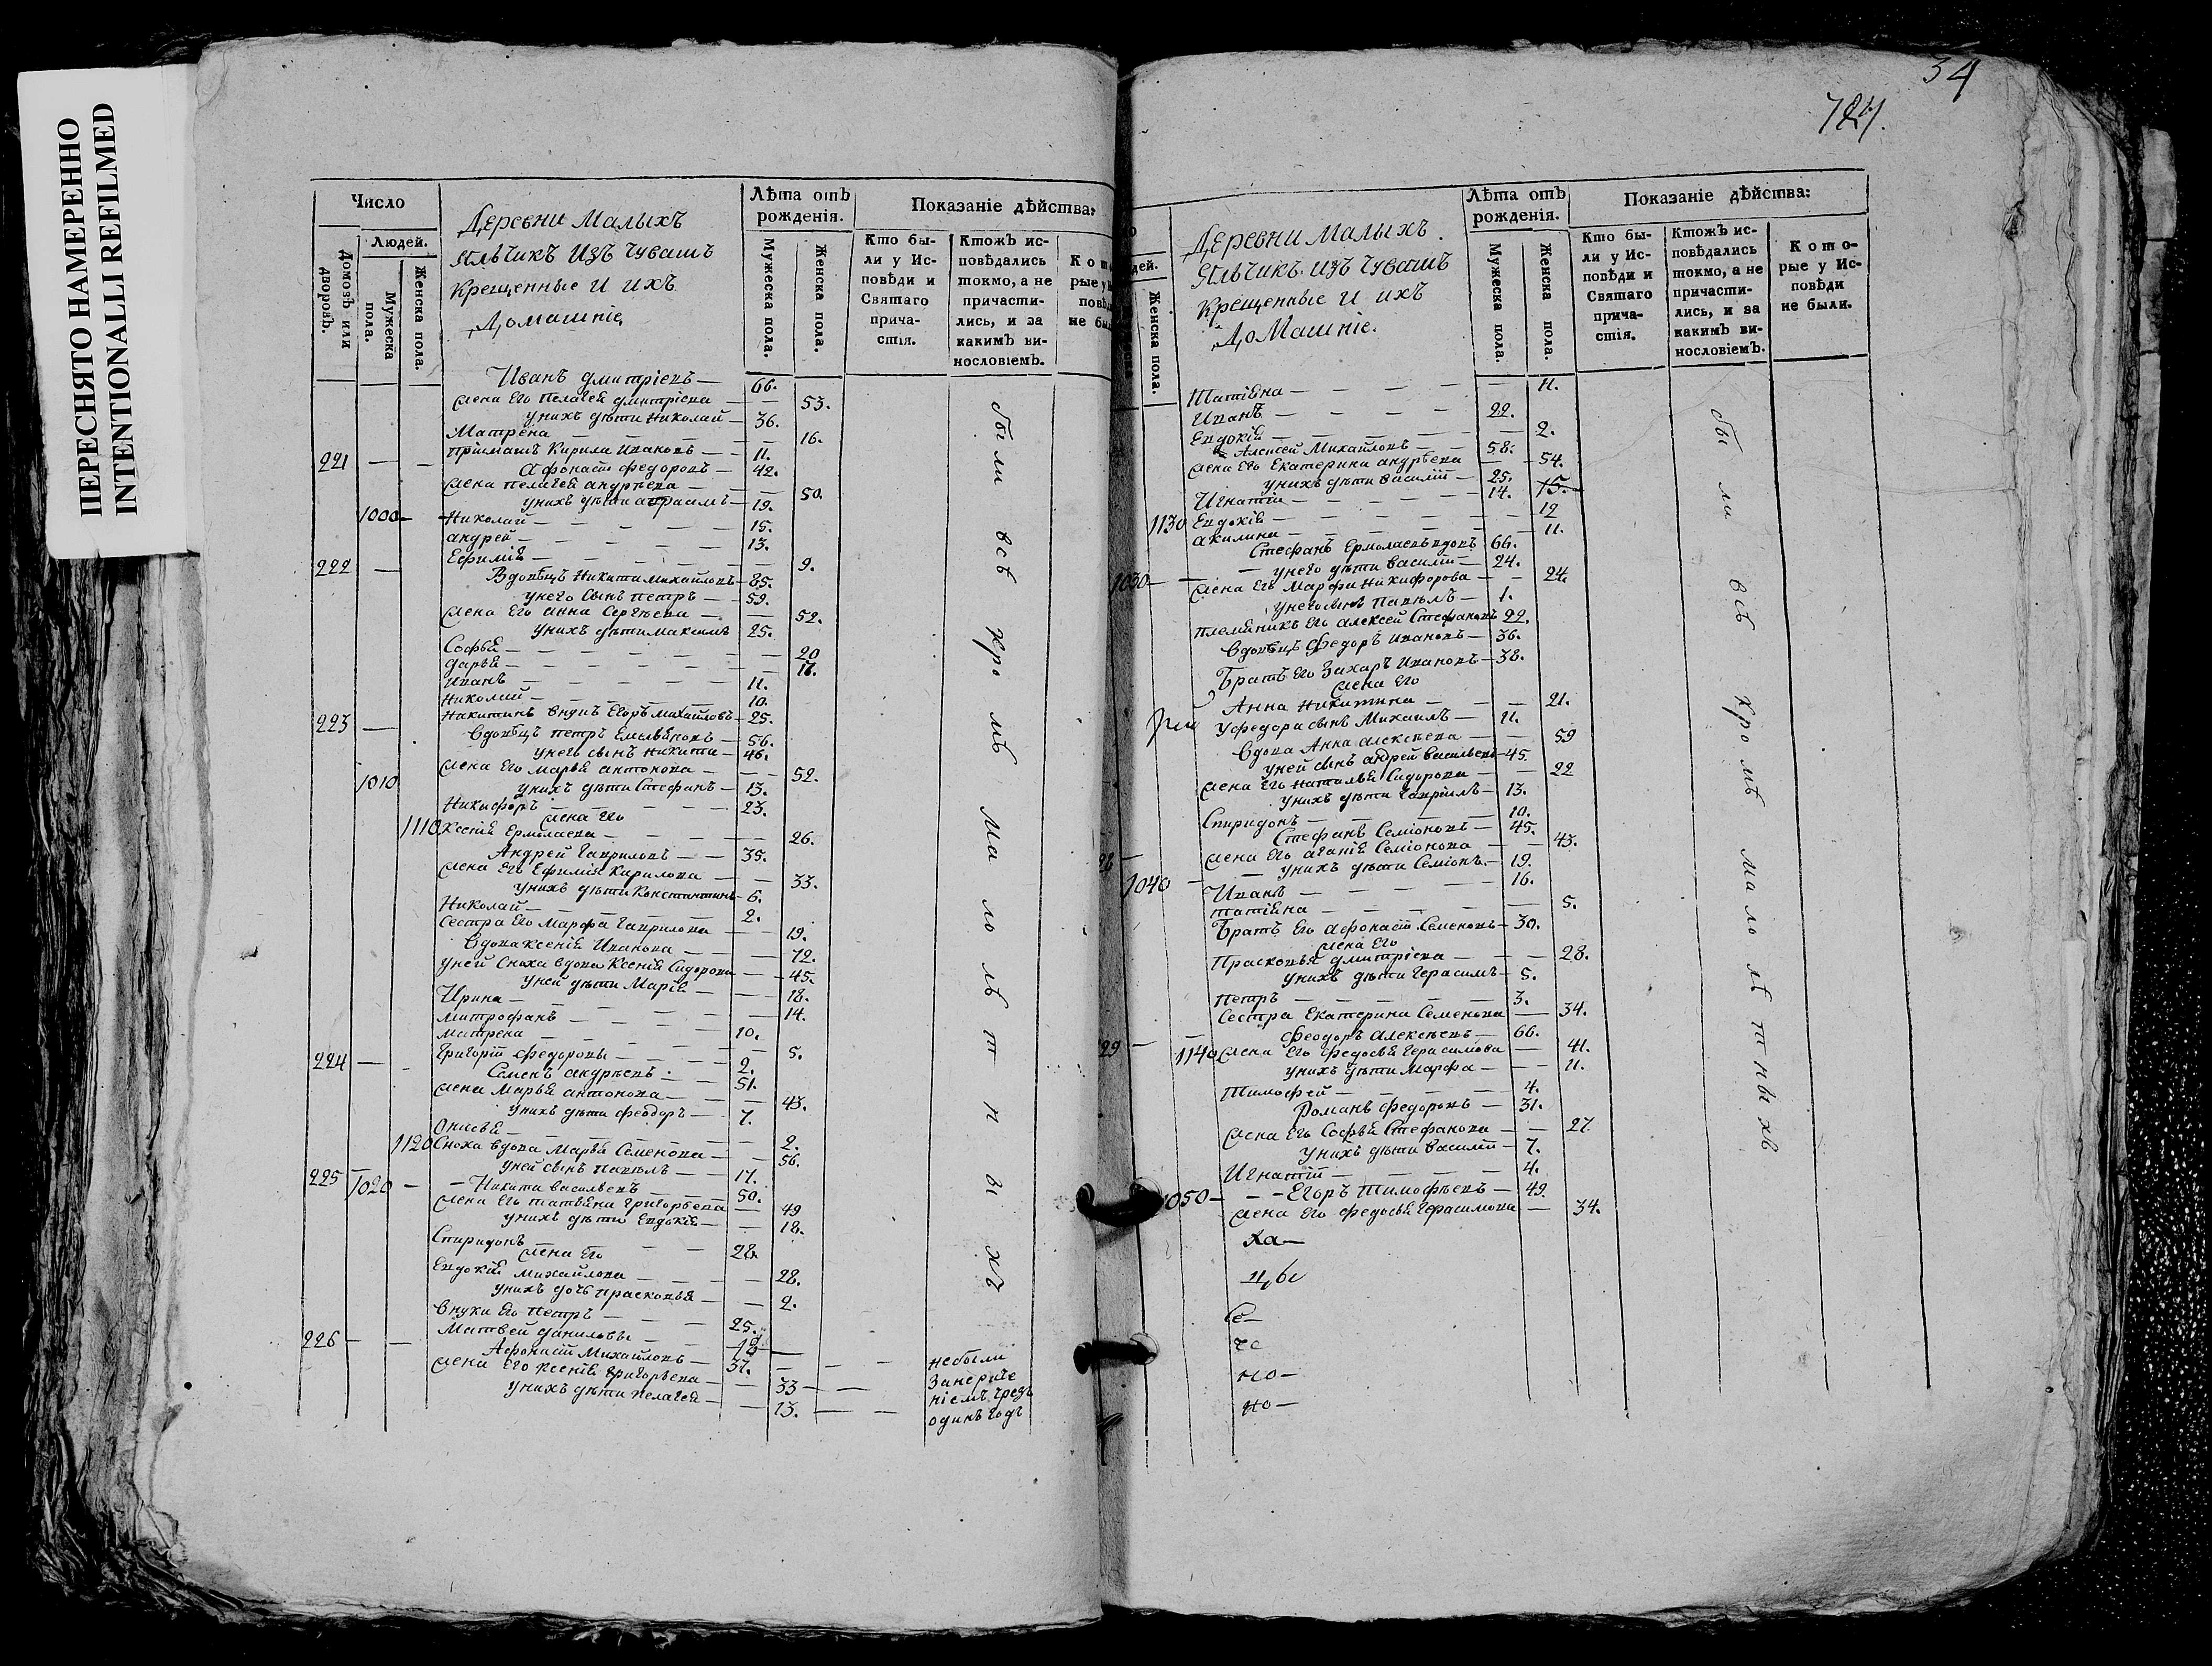 ПЕРЕСНЯТО НАМЕРЕННО
INTENTIONALLI REFILMED
34
Число
Людей.
Домовъ или дворовъ.
Мужеска пола.
Женска пола.
Деревни Малыхъ
Яльчикъ изъ чувашъ
крещенные и ихъ
Домашніе
Лѣта отъ рожденія.
Мужеска пола.
Женска пола.
Показаніе дѣйства:
Кто бы-
ли у Ис-
повѣди и
Святаго
прича-
стія.
Ктожъ ис-
повѣдались
токмо, а не
причасти-
лись, и за
какимъ ви-
нословіемъ.
Иванъ Дмитріевъ — 66.
жена его Пелагея Дмитріева — 53.
у нихъ дѣти Николай — 36.
Матрена — 16.
пріимашъ Кирила Ивановъ — 11.
221 — Афонасій Федоровъ — 42.
жена Пелагея Андрѣева — 50.
у нихъ дѣти — 19.
1000 — Николай — 15.
Андрей — 13.
Ефимія — 9.
222 — Вдовецъ Никита Михайловъ — 85.
у него сынъ Петръ — 59.
жена его Анна Сергѣева — 52.
у нихъ дѣти Максимъ 25.
Софья — 20
Дарья — 17.
Иванъ — 11.
Николай — 10.
Никитинъ внукъ Егоръ Михайловъ — 25.
223 — Вдовецъ Петръ Емельяновъ — 56.
у него сынъ Никита — 46.
жена его Марья Антонова — 52.
1010 у нихъ дѣти Стефанъ — 13.
Никифоръ — 23.
жена его
1110 Ксенія Ермолаева — 26.
Андрей Гавриловъ — 35.
жена его Ефимія Кирилова — 33.
у нихъ дѣти Константинъ — 6.
Николай — 2.
Сестра его Марфа Гаврилова — 19.
Вдова Ксенія Иванова — 72.
у ней сноха вдова Ксенія Сидорова — 45.
у ней дѣти Марія — 18.
Ирина — 14.
Митрофанъ — 10.
Матрена — 5.
Григорій Федоровы — 2.
224 — Семенъ Андрѣевъ — 51.
жена Марья Антонова — 43.
у нихъ дѣти Феодоръ — 7.
Онисья — 2.
1120 Сноха вдова Марья Семенова — 56.
у ней сынъ Павелъ — 17.
225 1020 — Никита Васильевъ 50.
жена его Татьяна Григорьева — 49
у нихъ дѣти Евдокія — 18.
Спиридонъ — 28.
жена его
Евдокія Михайлова — 28.
у нихъ дочь Прасковья — 2.
Внуки его Петръ — 25.
Матвей Даниловы —
226 — Афонасій Михайловъ — 37.
жена его Ксенія Григорьева — 33 —
у нихъ дѣти Пелагея — 13. —
были всѣ кромѣ малолѣтныхъ
небыли
один годъ
Деревни Малыхъ
Яльчикъ изъ чувашъ
крещенные и ихъ
Домашніе.
Женска пола.
Лѣта отъ рожденія.
Мужеска пола.
Женска пола.
Показаніе дѣйства:
Кто бы-
ли у Ис-
повѣди и
Святаго
прича-
стія.
Ктожъ ис-
повѣдались
токмо, а не
причасти-
лись, и за
какимъ ви-
нословіемъ.
Кото-
рые у Ис-
повѣди
не были.
Татіяна — 11.
Иванъ — 22.
Евдокія — 2.
Алексей Михайловъ — 58.
жена его Екатерина Андрѣева — 54.
у нихъ дѣти Василій — 25.
Игнатій — 14. 15.
1130 Евдокія — 12
Акилина — 11.
Стефанъ Ермолаевъ вдовъ 66.
1030 — у него дѣти Василій — 24.
жена его Марфа Никифорова — 24.
у него сынъ Павелъ — 1.
племянникъ его Алексей Стефановъ 22.
Вдовецъ Федоръ Ивановъ — 36.
Братъ его Захаръ Ивановъ — 38.
жена его
Анна Никитина — 21.
у Федора сынъ Михаилъ — 11.
Вдова Анна Алексѣева — 59
у ней сынъ Андрей Васильевъ — 45.
жена его Наталья Сидорова — 22
у нихъ дѣти Гавріилъ — 13.
Спиридонъ — 10.
Стефанъ Семіоновъ — 45.
жена его Аганія Семіонова — 43.
1040 — у нихъ дѣти Семіонъ — 19.
Иванъ — 16.
Татіяна — 5.
Братъ его Афонасій Семеновъ — 30.
жена его
Прасковья Дмитріева — 28.
у нихъ дѣти Герасимъ — 5.
Петръ — 3.
Сестра Екатерина Семенова — 34.
Феодоръ Алексѣевъ — 66.
1140 жена его Федосья Герасимова — 41.
у нихъ дѣти Марфа — 11.
Тимофей — 4.
Романъ Федоровъ — 31.
жена его Софья Стефанова — 27.
у нихъ дѣти Василій — 7.
Игнатій — 4.
1050 — Егоръ Тимофѣевъ — 49.
жена его Федосья Герасимова — 34.
были всѣ кромѣ малолѣтныхъ
Ха—
Се—
че
но—